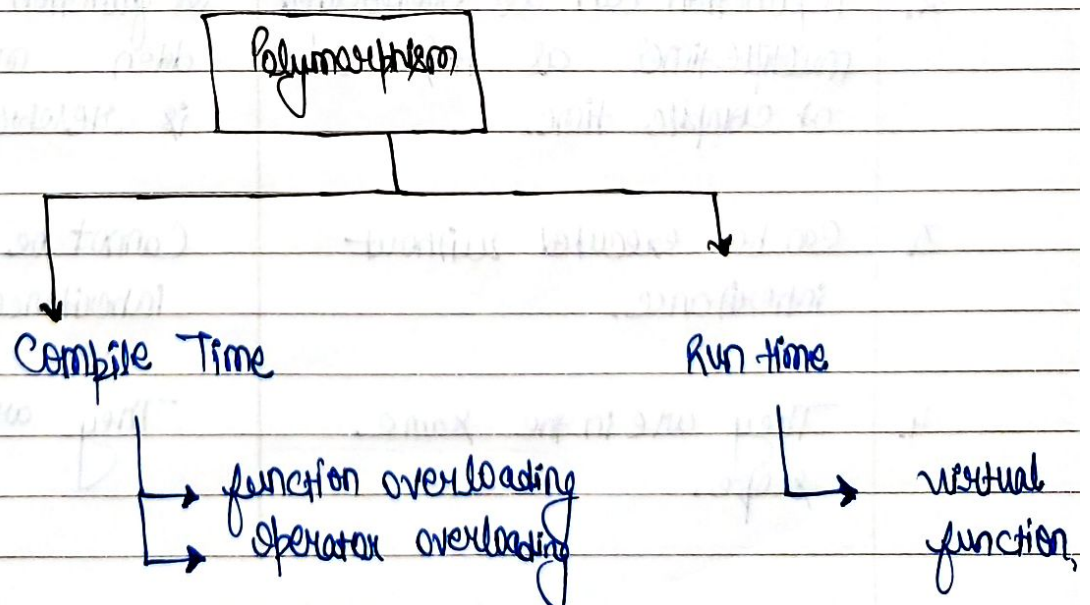 Polymorphism
Compile Time
Run time
function overloading
operator overloading
virtual
function,